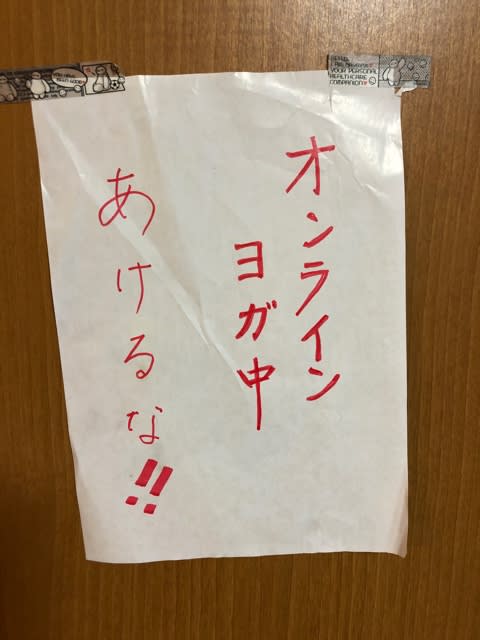 オンライン
ヨガ中
あけるな!!
YOUR PERSONAL
HEALTHCARE
COMPANION